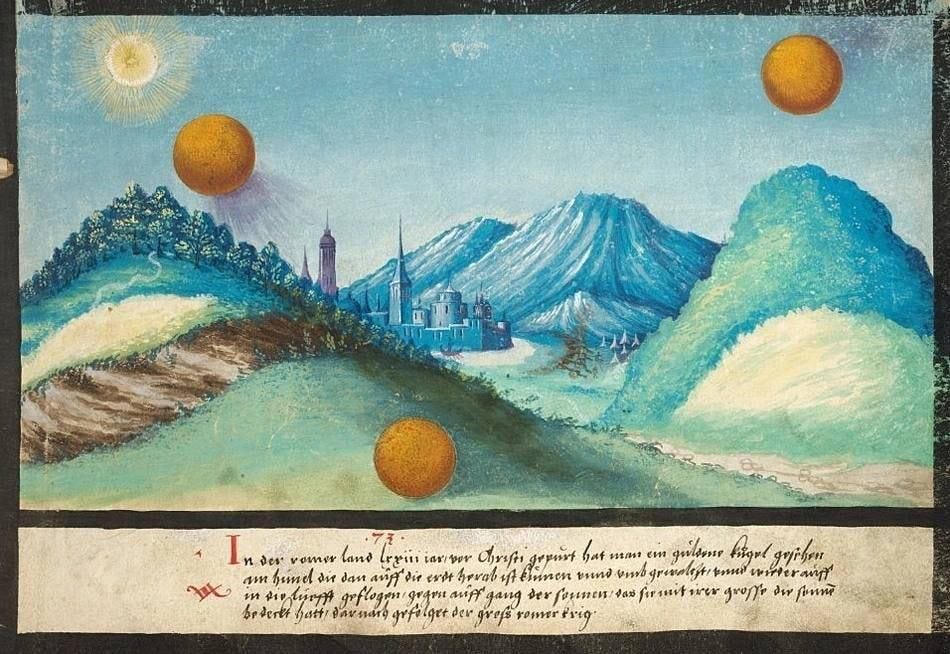 .73.
In der romer land lxxiii iar, vor Christi gepurt hat man ein guldene kugel gesehen
am himel die dan auff die erdt herab ist kumen vnnd vmb gewaltzt, vnnd wieder auff
in die lüefft geflogen, gegen auff gang der sonnen, das sie mit irer grosse die sonne
bedeckt hatt, dar nach gefolget der gross romer krig